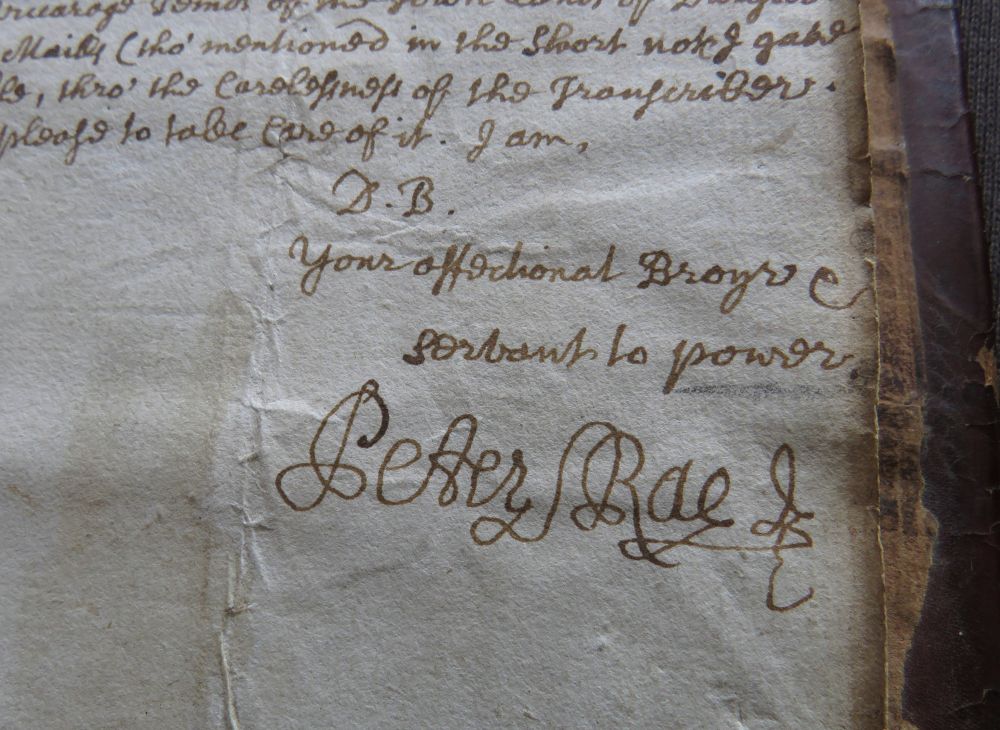 of the Town
Mails (tho' mentioned in the short note I gave
thro' the Carelessness of the Transcriber.
please to take Care of it. I am,
D. B.
Your affectionat Broyr &
servant to power.
Peter Rae